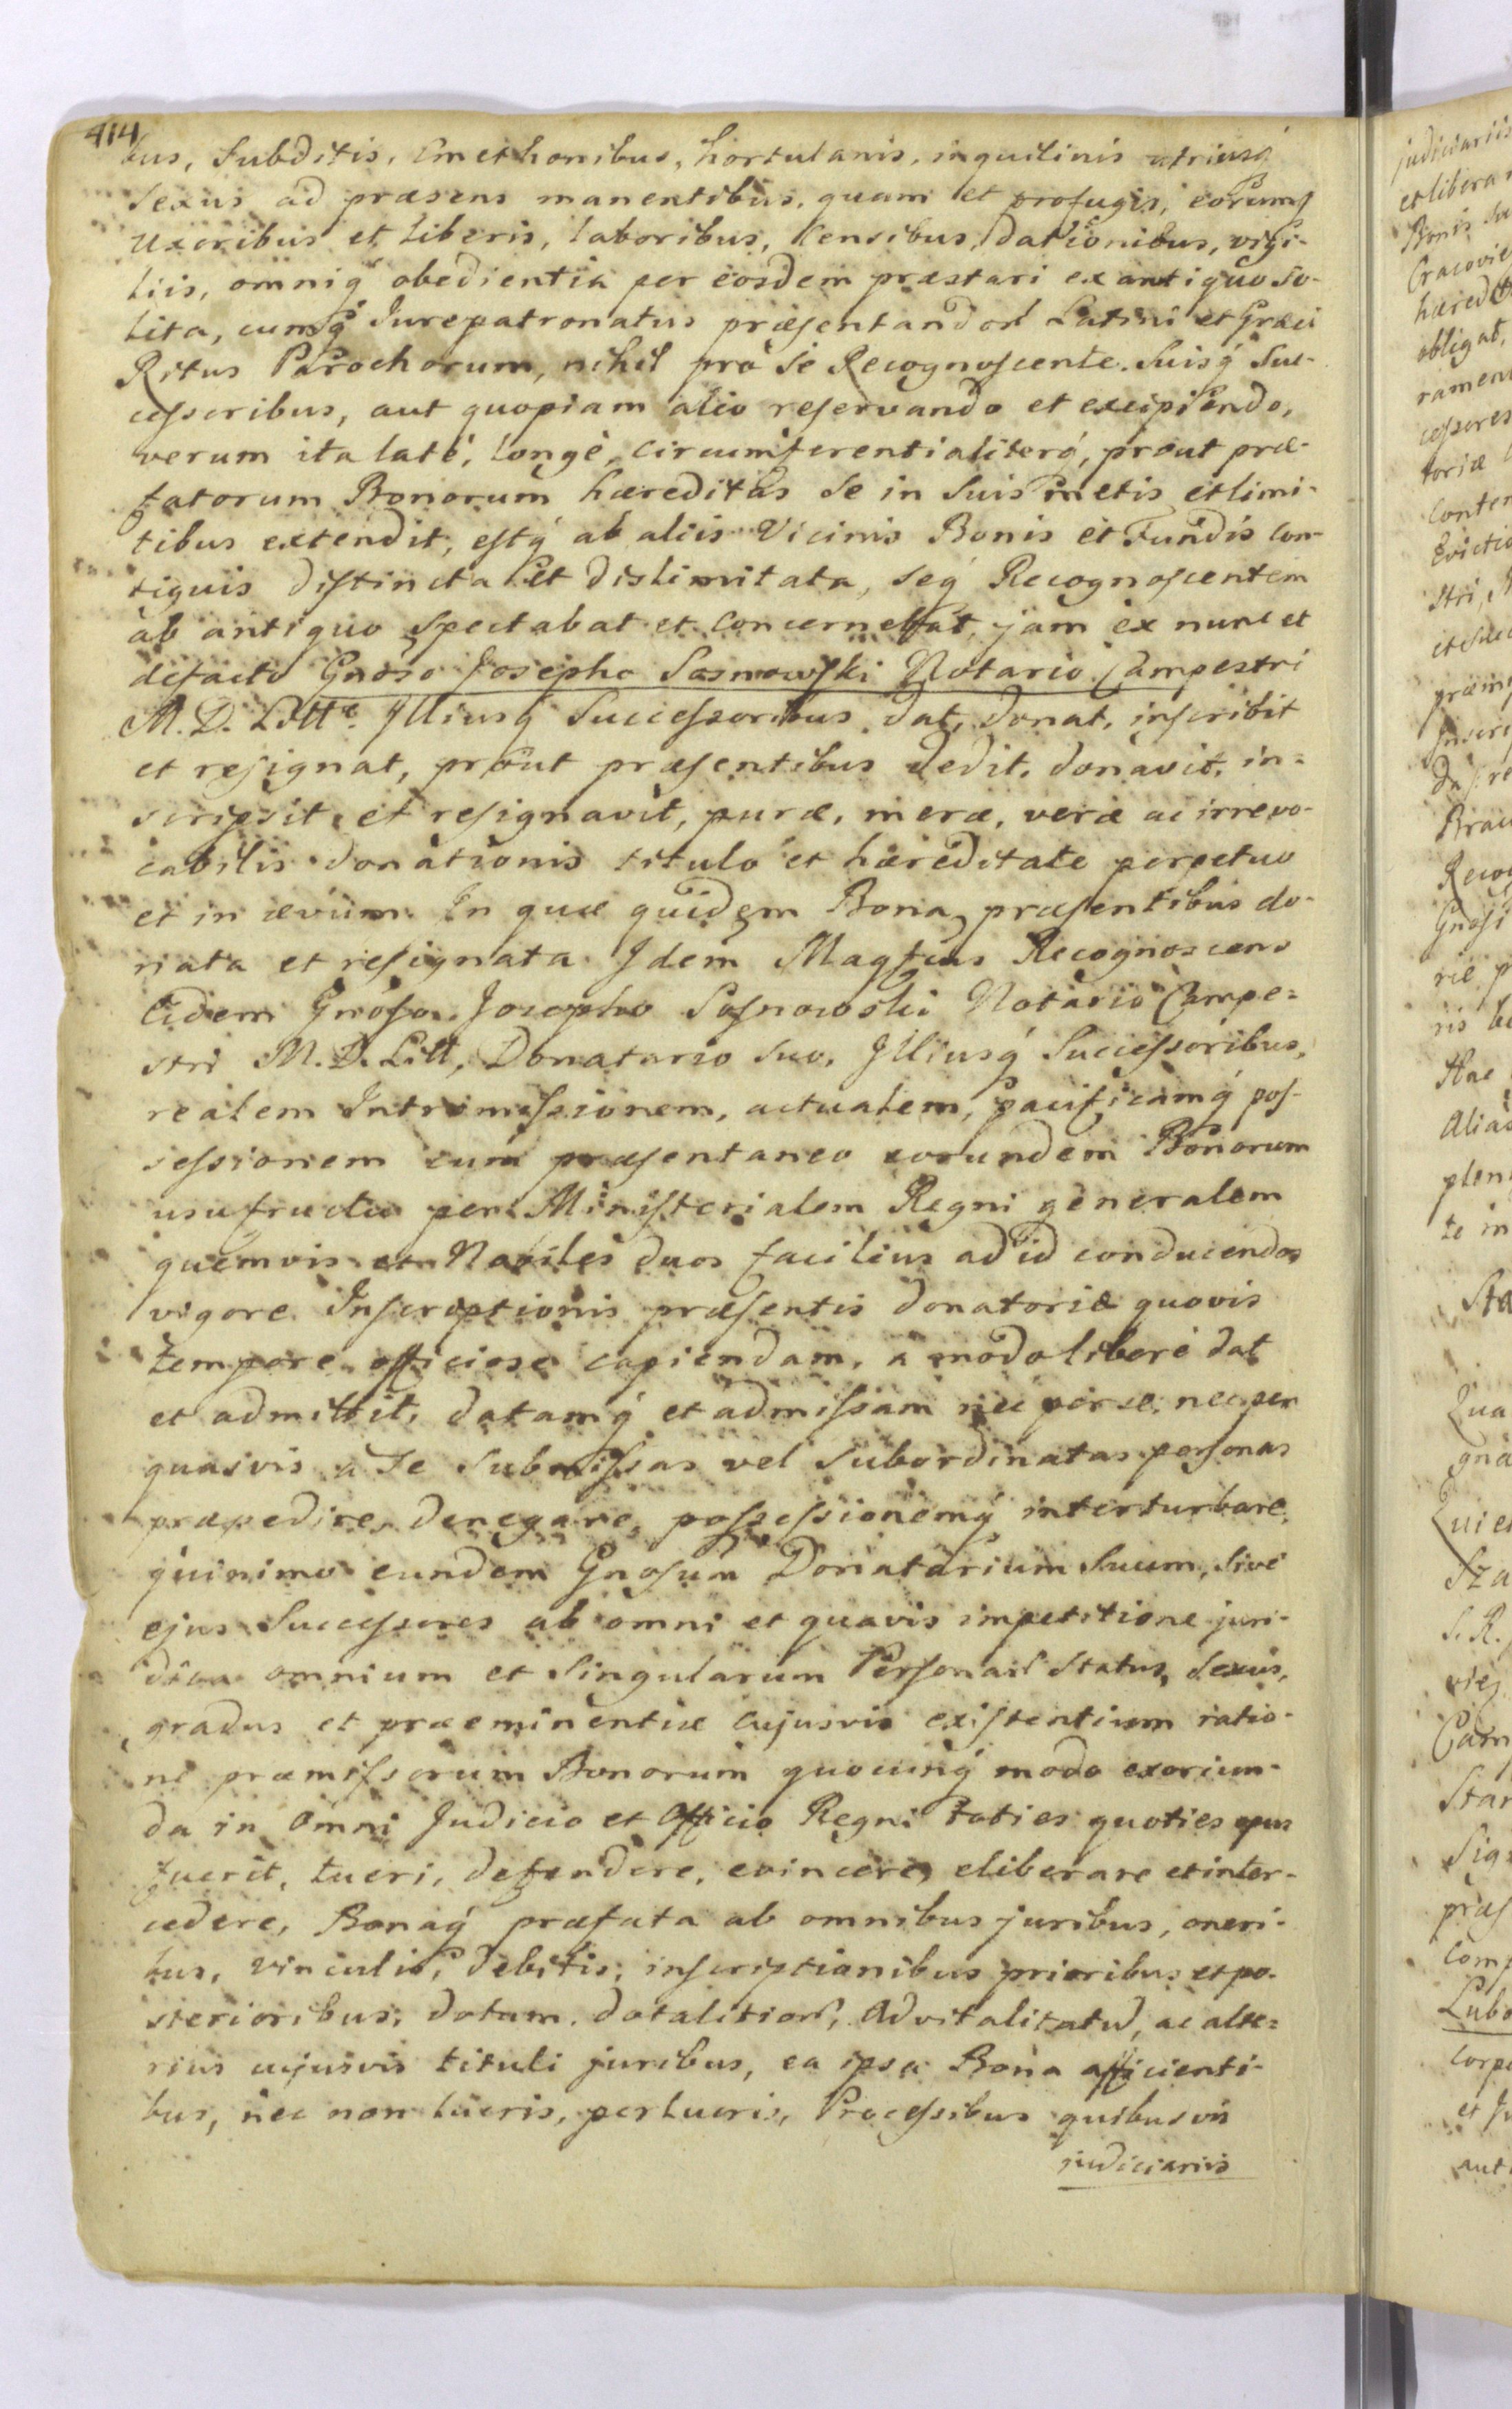 414
bus, Subditis, Cmethonibus, hortulanis, inquilinis utriusq́
Sexus ad præsens manentibus, quam et profugis, eorumq́
Uxoribus et Liberis, laboribus, Censibus, dationibus, vigi-
liis, omniq́ obedientia per eosdem præstari ex antiquo so-
lita, cumq́ Jurepatronatus præsentandor Latini et Græci
Ritus Parochorum, nihil pro se Recognoscente. Suisq́ Suc-
cessoribus, aut quopiam alio reservando et excipiendo,
verum ita latè, longè, circumferentialiterq́, prout præ-
fatorum Bonorum hæreditas se in suis metis et limi-
tibus extendit, estq́ ab aliis Vicinis Bonis et Fundis con-
tiguis distincta et dislimitata, seq́ Recognoscentem
ab antiquo spectabat et concernebat, jam ex nunc et
defacto Gnoso Josepho Sosnowski Notario Campestri
M. D. Litt. Illiusq́ Successoribus dat, donat, inscribit
et resignat, prout præsentibus dedit, donavit, in-
scripsit et resignavit, puræ, meræ, veræ ac irrevo-
cabilis donationis titulo et hæreditate perpetuo
et in ævum. In quæ quidem Bona præsentibus do-
nata et resignata Idem Magfcus Recognoscens
Eidem Gnoso Josepho Sosnowski Notario Campe-
stri M. D. Litt, Donatario suo, Illiusq́ Successoribus,
realem Intromissionem, actualem, pacificamq́ pos-
sessionem cum præsentaneo eorundem Bonorum
usufructu per Ministerialem Regni generalem
quemvis et Nobiles duos facilius ad id conducendos
vigore Inscriptionis præsentis donatoriæ quovis
tempore officiose capiendam, a modo liberè dat
et admittit, datamq́ et admissam nec per se, nec per
quasvis a Se Submissas vel subordinatas personas
præpedire, denegare, possessionemq́ interturbare,
quinimo eundem Gnosum Donatarium Suum, sive
ejus Successores ab omni et quavis impetitione juri-
dica omnium et Singularum Personar Status, Sexus,
gradus et præeminentiæ cujusvis existentium ratio-
ne præmissorum Bonorum quocunq́ modo exoriun-
da in omni Judicio et Officio Regni toties quoties opus
fuerit, tueri, defendere, evincere, eliberare et inter-
cedere, Bonaq́ præfata ab omnibus juribus, oneri-
bus, vinculis, debitis, inscriptionibus prioribus et po-
sterioribus, dotum, dotalitior, Advitalitatu, ac alte-
rius cujusvis tituli juribus, ea ipsa Bona afficienti-
bus, nec non lucris, perlucris, Processibus quibusvis
judiciariis
judiciariis
et libera
Bonis
Cracovie
hæred
obligat,
ramen
cessores
toriæ
conten
Evictio
stri,
præm
Inscri
Brac
Recog
Gnosi
ris
Hac
Alias
plen
te in
Qua
gna
Qui
Sza
S. R.
viej
Cam
Star
Sig
præs
comp
Lubo
corp
et
aut